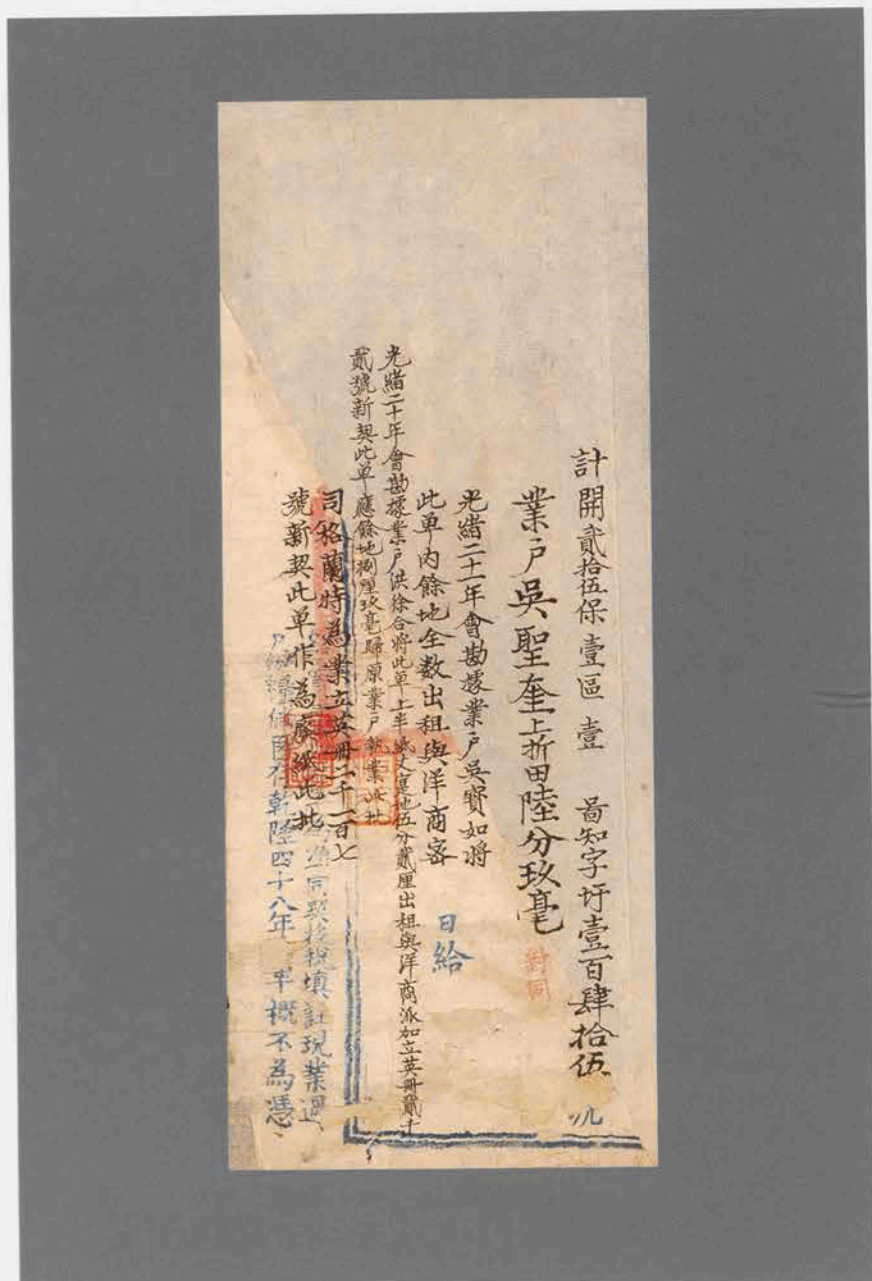 計開貳拾伍保壹區壹 啚知字圩壹百肆拾伍
業户吳聖奎上折田陸分玖毫
對同
光緒二十一年會勘據業户吳寶如將
日給
此单内餘地全数出租與洋商客
光緒二十年會勘據業户洪徐合將此单上半紙丈見地伍分貳厘出租與洋商派加立英冊貳千
貳號新契此单應餘地捌厘玖毫歸原業户執業此批
司格蘭特為業立英冊二千一百七
號新契此单作為廢紙此批
同契投税填註現業過
乾隆四十八年 概不為憑